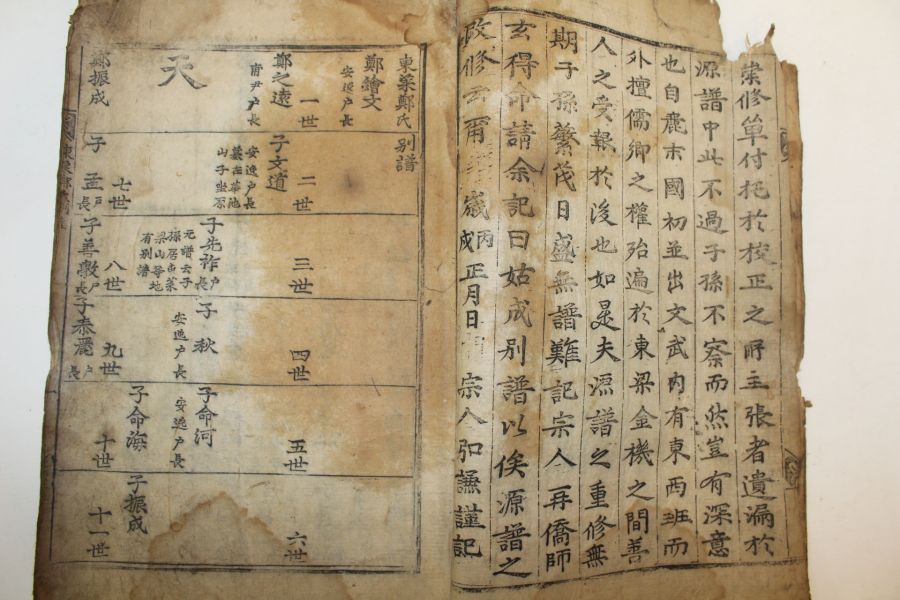 蒐修單付托於校正之所主張者遺漏於
源譜中此不過子孫不察而然豈有深意
也自麗末國初並出文武內有東西班而
外擅儒鄉之權殆遍於東梁金機之間善
人之受報於後也如是夫源譜之重修無
期子孫繁茂日盛無譜難記宗人再僑師
玄得命請余記曰姑成別譜以俟源譜之
改修云爾
歲丙戌正月日
宗人弘謙謹記
東萊鄭氏別譜
鄭繪文
安逸戶長
一世
鄭之遠
府尹戶長
天
鄭振成
二世
子文道
安逸戶長
墓在華池
山子坐原
七世
子孟
戶長
三世
子先祚
戶長
元譜云子
孫居東萊
梁山等地
有別譜
八世
子善敎
戶長
四世
子秋
安逸戶長
九世
子泰麗
戶長
五世
子命河
安逸戶長
子命海
十世
六世
子振成
十一世